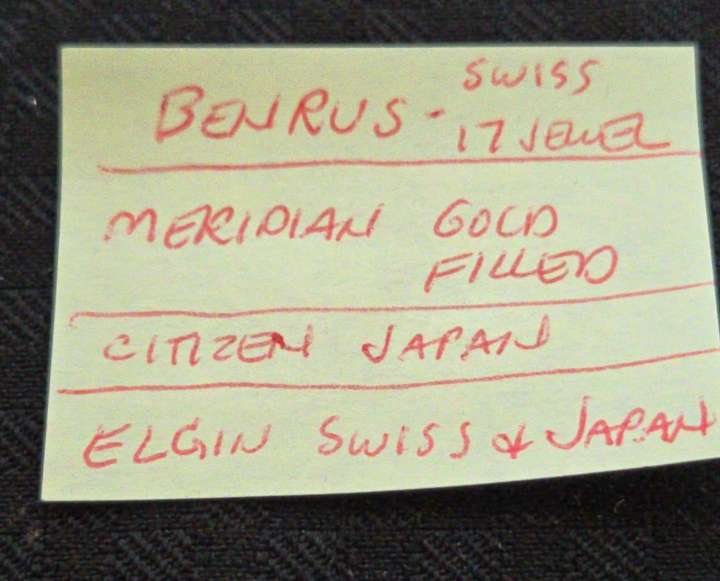 BENRUS - SWISS
17 JEWEL
MERIDIAN GOLD
FILLED
CITIZEN JAPAN
ELGIN SWISS & JAPAN